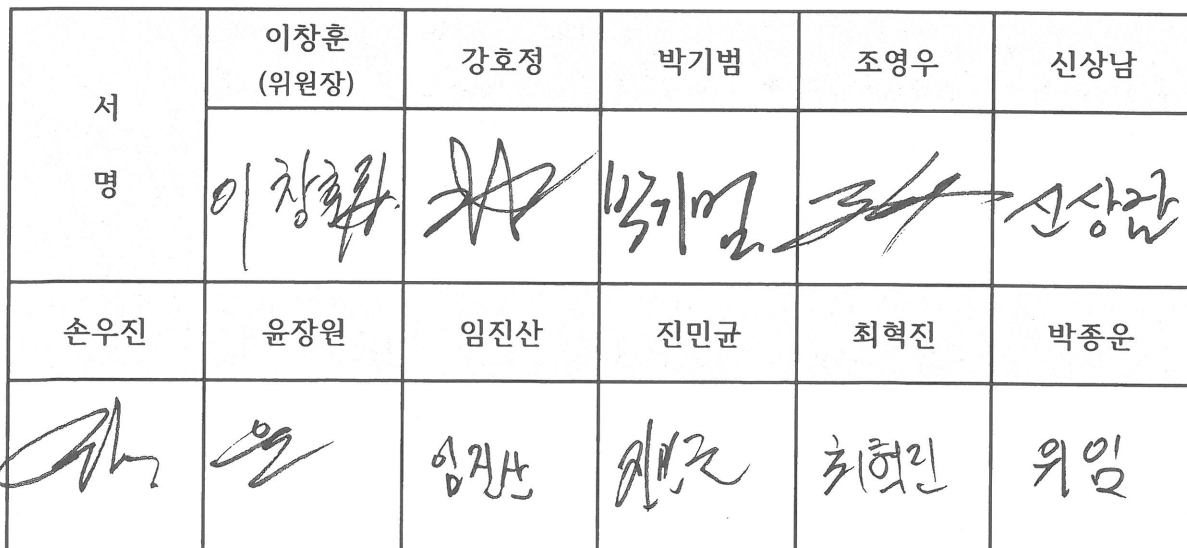 서
명
이창훈
(위원장)
강호정
박기범
조영우
신상남
이창훈
박기범
신상남
손우진
윤장원
임진산
진민균
최혁진
박종운
윤
임진산
진민균
최혁진
위임